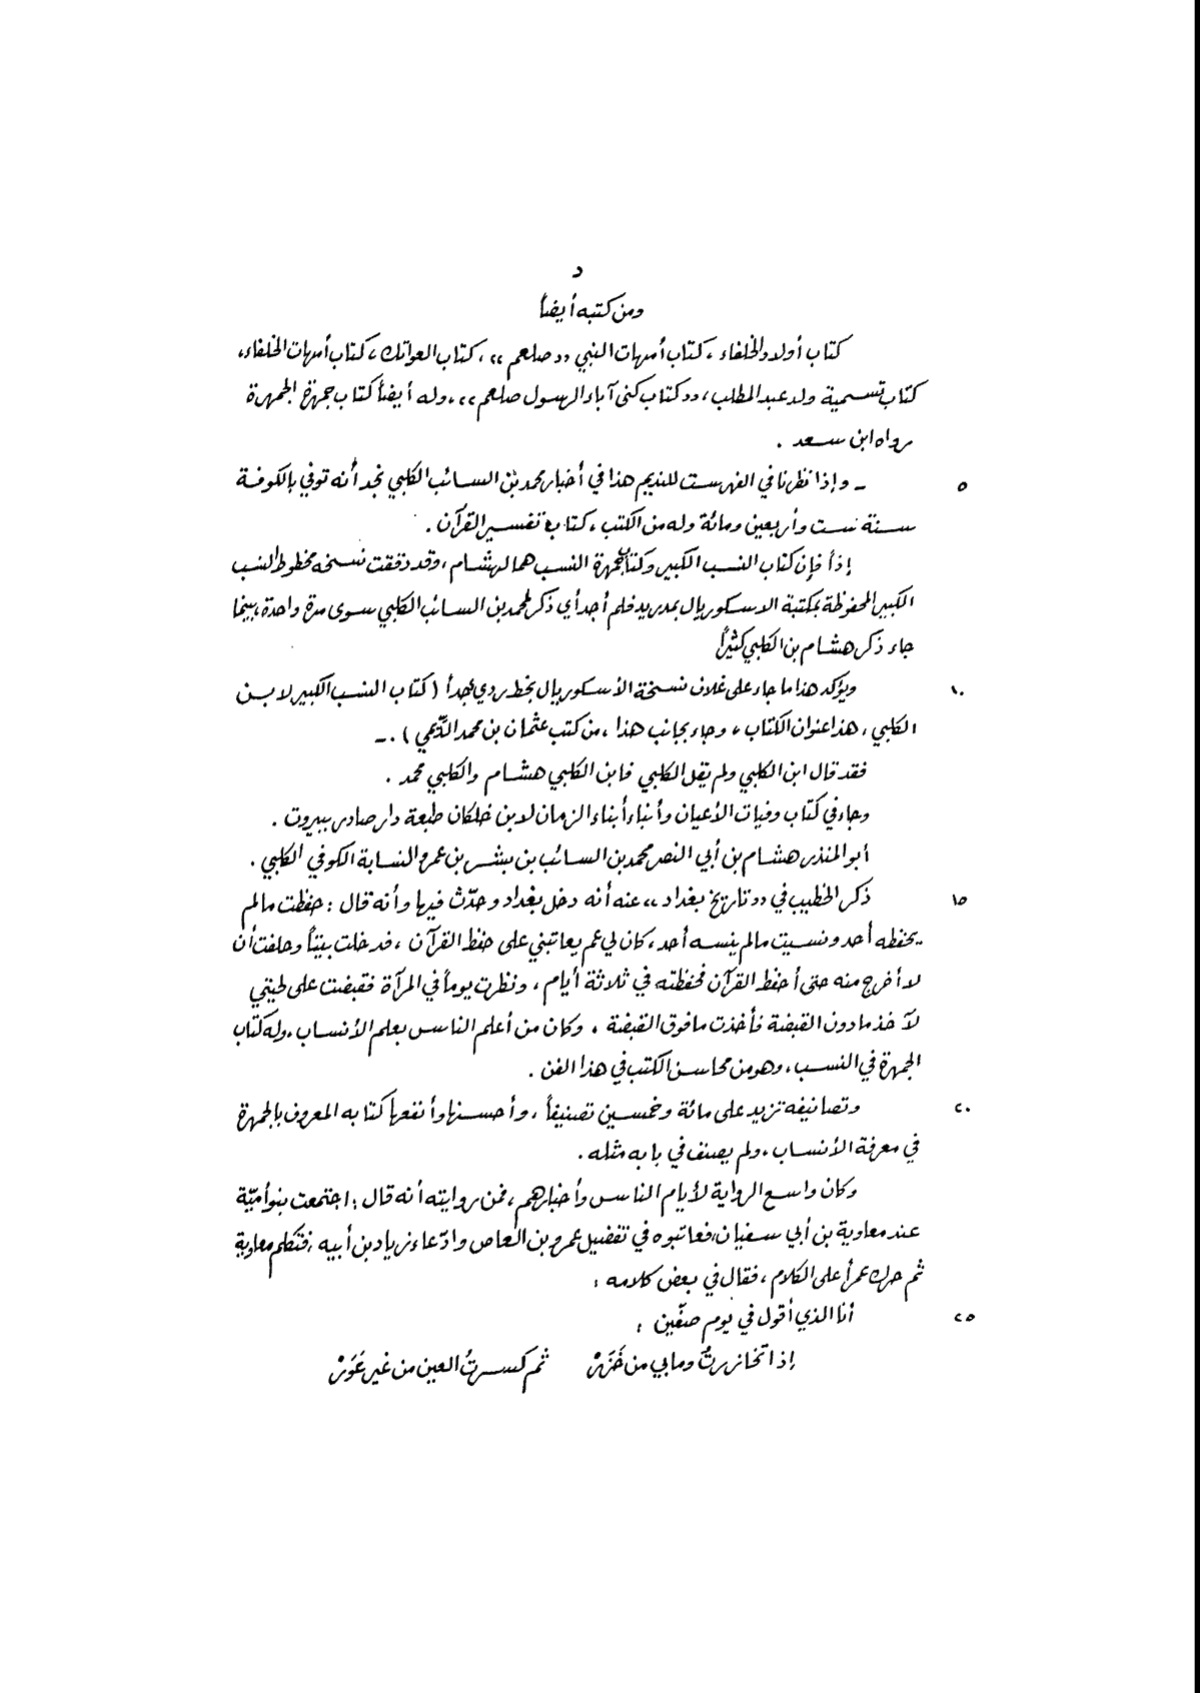 د
ومن كتبه أيضاً
كتاب أولاد الخلفاء ، كتاب أمهات النبي ,, صلعم ،، ، كتاب العواتك ، كتاب أمهات الخلفاء،
كتاب تسمية ولد عبد المطلب ، ,, كتاب كنى آباء الرسول صلعم ،، . وله أيضاً كتاب جمهرة الجمهرة
رواه ابن سعد .
٥ ـ وإذا نظرنا في الفهرست للنديم هذا في أخبار محمد بن السائب الكلبي نجد أنه توفي بالكوفة
سنة ست وأربعين ومائة وله من الكتب ، كتاب تفسير القرآن .
إذاً فإن كتاب النسب الكبير وكتاب جمهرة النسب هما لهشام ، وقد دققت نسخة مخطوط النسب
الكبير المحفوظة بمكتبة الاسكوريال بمدريد فلم أجد أي ذكر لمحمد بن السائب الكلبي سوى مرة واحدة ، بينما
جاء ذكر هشام بن الكلبي كثيراً
١٠ ويؤكد هذا ما جاء على غلاف نسخة الأسكوريال بخط ردي جداً ( كتاب النسب الكبير لابن
الكلبي ، هذا عنوان الكتاب ، وجاء بجانب هذا ، من كتب عثمان بن محمد الدّيمي ) . ـ
فقد قال ابن الكلبي ولم يقل الكلبي فابن الكلبي هشام والكلبي محمد .
وجاء في كتاب وفيات الأعيان وأنباء أبناء الزمان لابن خلكان طبعة دار صادر ببيروت .
أبو المنذر هشام بن أبي النصر محمد بن السائب بن بشر بن عمرو النسابة الكوفي الكلبي .
١٥ ذكر الخطيب في ,, تاريخ بغداد ،، عنه أنه دخل بغداد وحدّث فيها وأنه قال : حفظت ما لم
يحفظه أحد ونسيت ما لم ينسه أحد ، كان لي عم يعاتبني على حفظ القرآن ، فدخلت بيتاً وحلفت أن
لا أخرج منه حتى أحفظ القرآن فحفظته في ثلاثة أيام ، ونظرت يوماً في المرآة فقبضت على لحيتي
لآخذ ما دون القبضة فأخذت ما فوق القبضة . وكان من أعلم الناس بعلم الأنساب . وله كتاب
الجمهرة في النسب ، وهو من محاسن الكتب في هذا الفن .
٢٠ وتصانيفه تزيد على مائة وخمسين تصنيفاً ، وأحسنها وأنفعها كتابه المعروف بالجمهرة
في معرفة الأنساب ، ولم يصنف في بابه مثله .
وكان واسع الرواية لأيام الناس وأخبارهم ، فمن روايته أنه قال : اجتمعت بنو أميّة
عند معاوية بن أبي سفيان ، فعاتبوه في تفضيل عمرو بن العاص وادّعاء زياد بن أبيه ، فتكلم معاوية
ثم حرك عمراً على الكلام ، فقال في بعض كلامه :
٢٥ أنا الذي أقول في يوم صفّين :
إذا تخازرتُ وما بي من خَزَرْ ثم كسرتُ العين من غير عَوَرْ